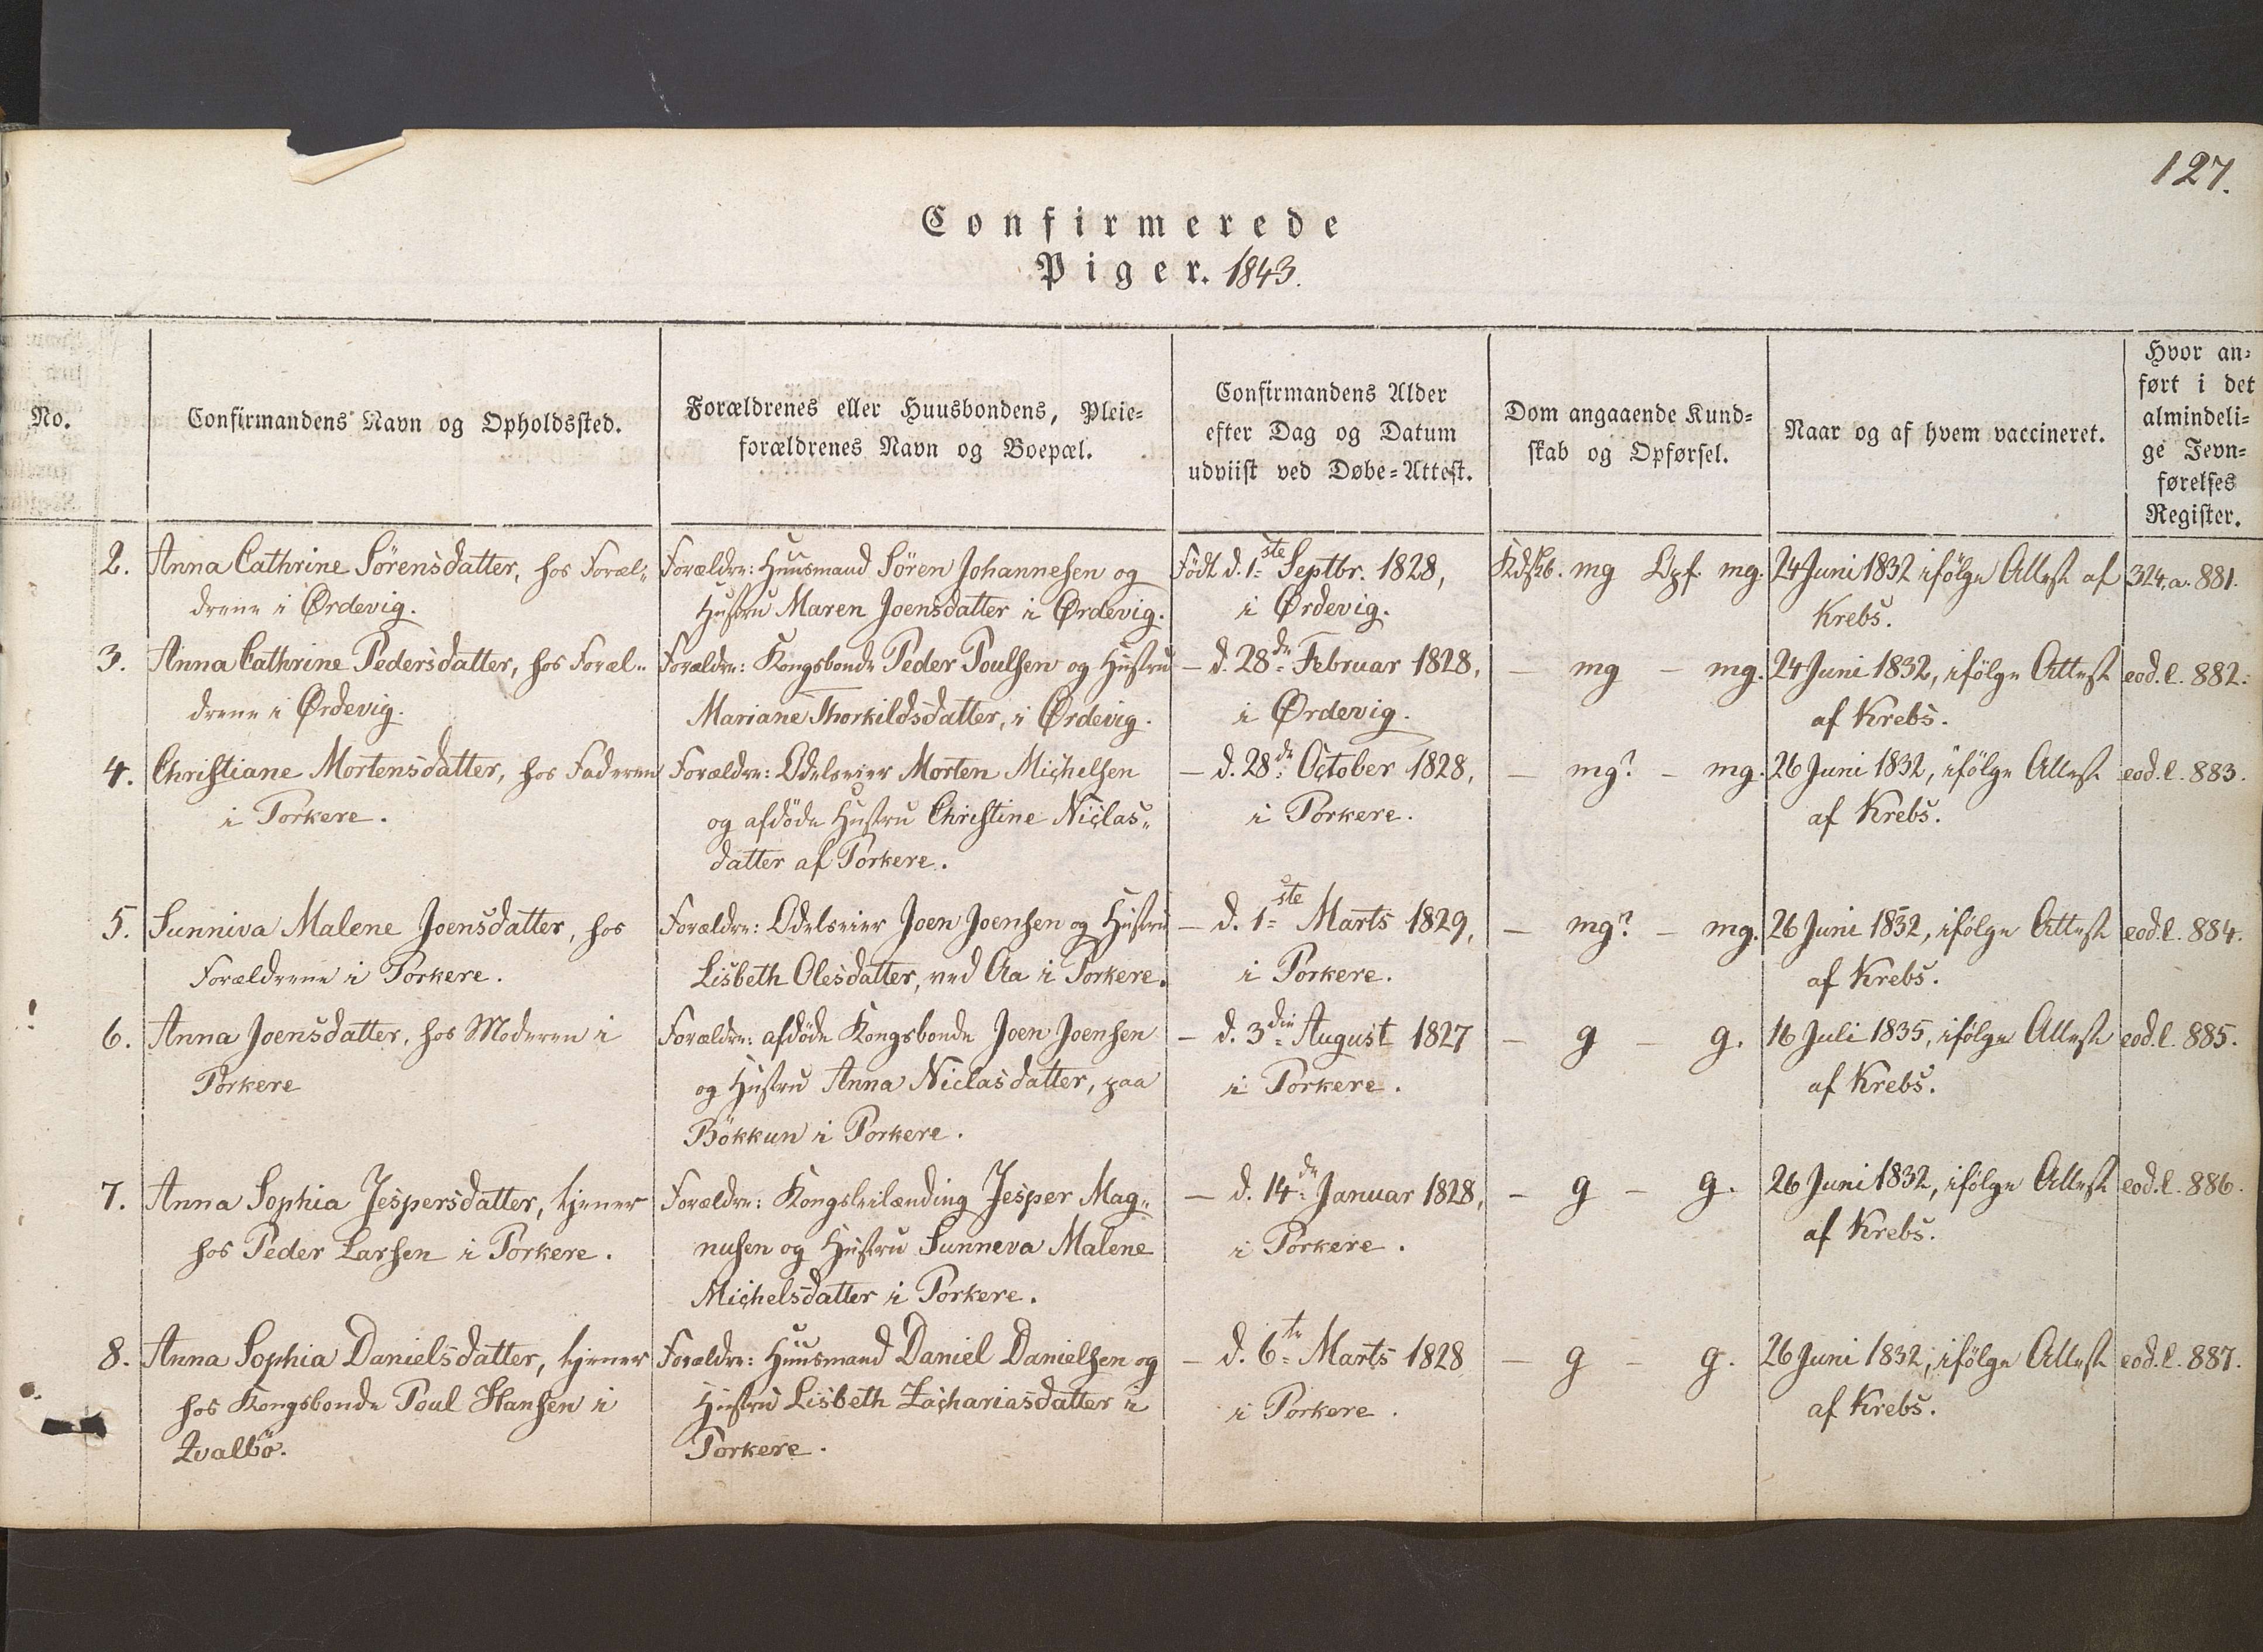 127.
Confirmerede
Piger. 1843.
No.
Confirmandens Navn og Opholdssted.
Forældrenes eller Huusbondens, Pleie-
forældrenes Navn og Boepæl.
Confirmandens Alder
efter Dag og Datum
udviist ved Døbe-Attest.
Dom angaaende Kund-
skab og Opførsel.
Naar og af hvem vaccineret.
Hvor an-
ført i det
almindeli-
ge Jevn-
førelses
Register.
2.
Anna Cathrine Sörensdatter, hos Foræl-
drene i Ørdevig.
Forældre: Huusmand Sören Johannesen og
Hustru Maren Joensdatter i Ørdevig.
Födt d. 1ste Septbr. 1828,
i Ørdevig.
Kdskb. mg Opf. mg.
24 Juni 1832 ifölge Attest af
Krebs.
324.a. 881.
3.
Anna Cathrine Pedersdatter, hos Foræl-
drene i Ørdevig.
Forældre: Kongsbonde Peder Poulsen og Hustru
Mariane Thorkildsdatter, i Ørdevig.
— d. 28de Februar 1828,
i Ørdevig.
— mg — mg.
24 Juni 1832, ifölge Attest
af Krebs.
eod. l. 882.
4.
Christiane Mortensdatter, hos Faderen
i Porkere.
Forældre: Odelseier Morten Michelsen
og afdöde Hustru Christine Niclas-
datter af Porkere.
— d. 28de October 1828,
i Porkere.
— mg? — mg.
26 Juni 1832, ifölge Attest
af Krebs.
eod. l. 883.
5.
Sunniva Malene Joensdatter, hos
Forældrene i Porkere.
Forældre: Odelseier Joen Joensen og Hustru
Lisbeth Olesdatter, ved Aa i Porkere.
— d. 1ste Marts 1829,
i Porkere.
— mg? — mg.
26 Juni 1832, ifölge Attest
af Krebs.
eod. l. 884.
!
6.
Anna Joensdatter, hos Moderen i
Porkere
Forældre: afdöde Kongsbonde Joen Joensen
og Hustru Anna Niclasdatter, paa
Bökkun i Porkere.
— d. 3die August 1827
i Porkere.
— g — g.
16 Juli 1835, ifölge Attest
af Krebs.
eod. l. 885.
7.
Anna Sophia Jespersdatter, tjener
hos Peder Larsen i Porkere.
Forældre: Kongsleilænding Jesper Mag-
nusen og Hustru Sunneva Malene
Michelsdatter i Porkere.
— d. 14de Januar 1828,
i Porkere.
— g — g.
26 Juni 1832, ifölge Attest
af Krebs.
eod. l. 886.
8.
Anna Sophia Danielsdatter, tjener
hos Kongsbonde Poul Hansen i
Qvalbö.
Forældre: Huusmand Daniel Danielsen og
Hustru Lisbeth Zachariasdatter i
Porkere.
— d. 6te Marts 1828
i Porkere.
— g — g.
26 Juni 1832, ifölge Attest
af Krebs.
eod. l. 887.